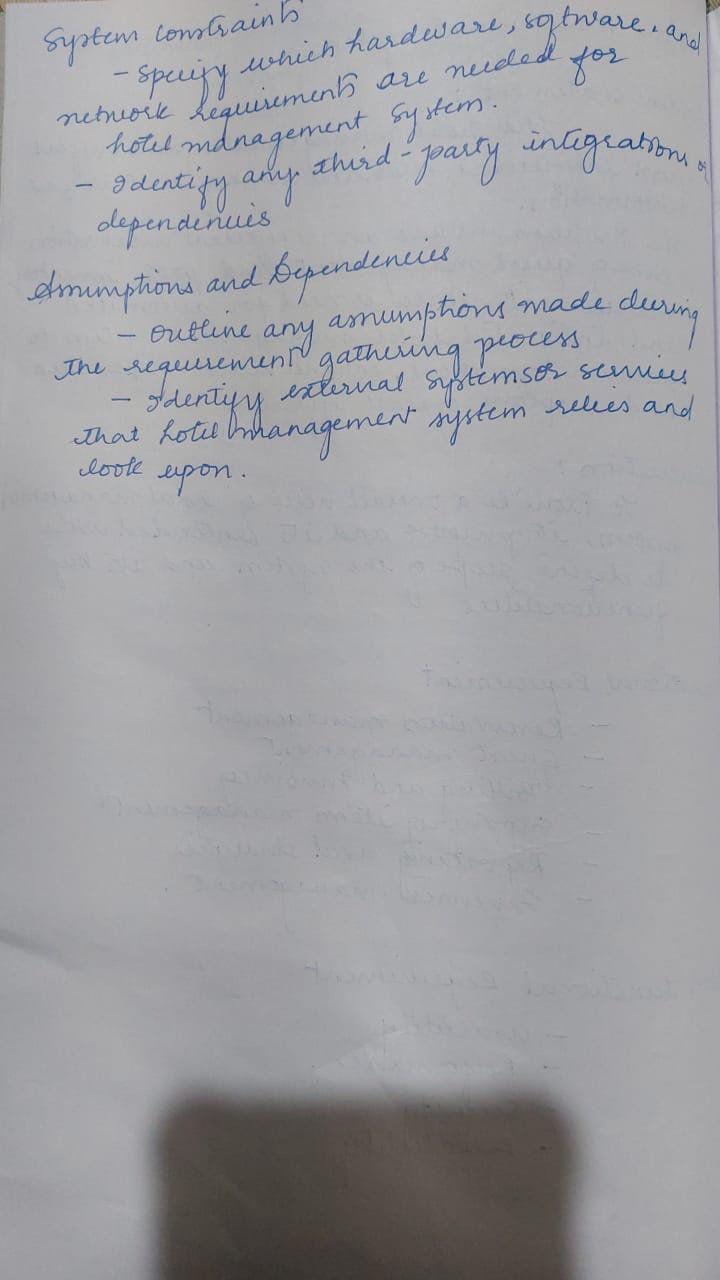 System constraints
- Specify which hardware, software, and
network requirements are needed for
hotel management system.
- Identify any third-party integrations or
dependencies
Assumptions and Dependencies
- Outline any assumptions made during
the requirement gathering process
- Identify external systems or services
that hotel management system relies and
look upon.